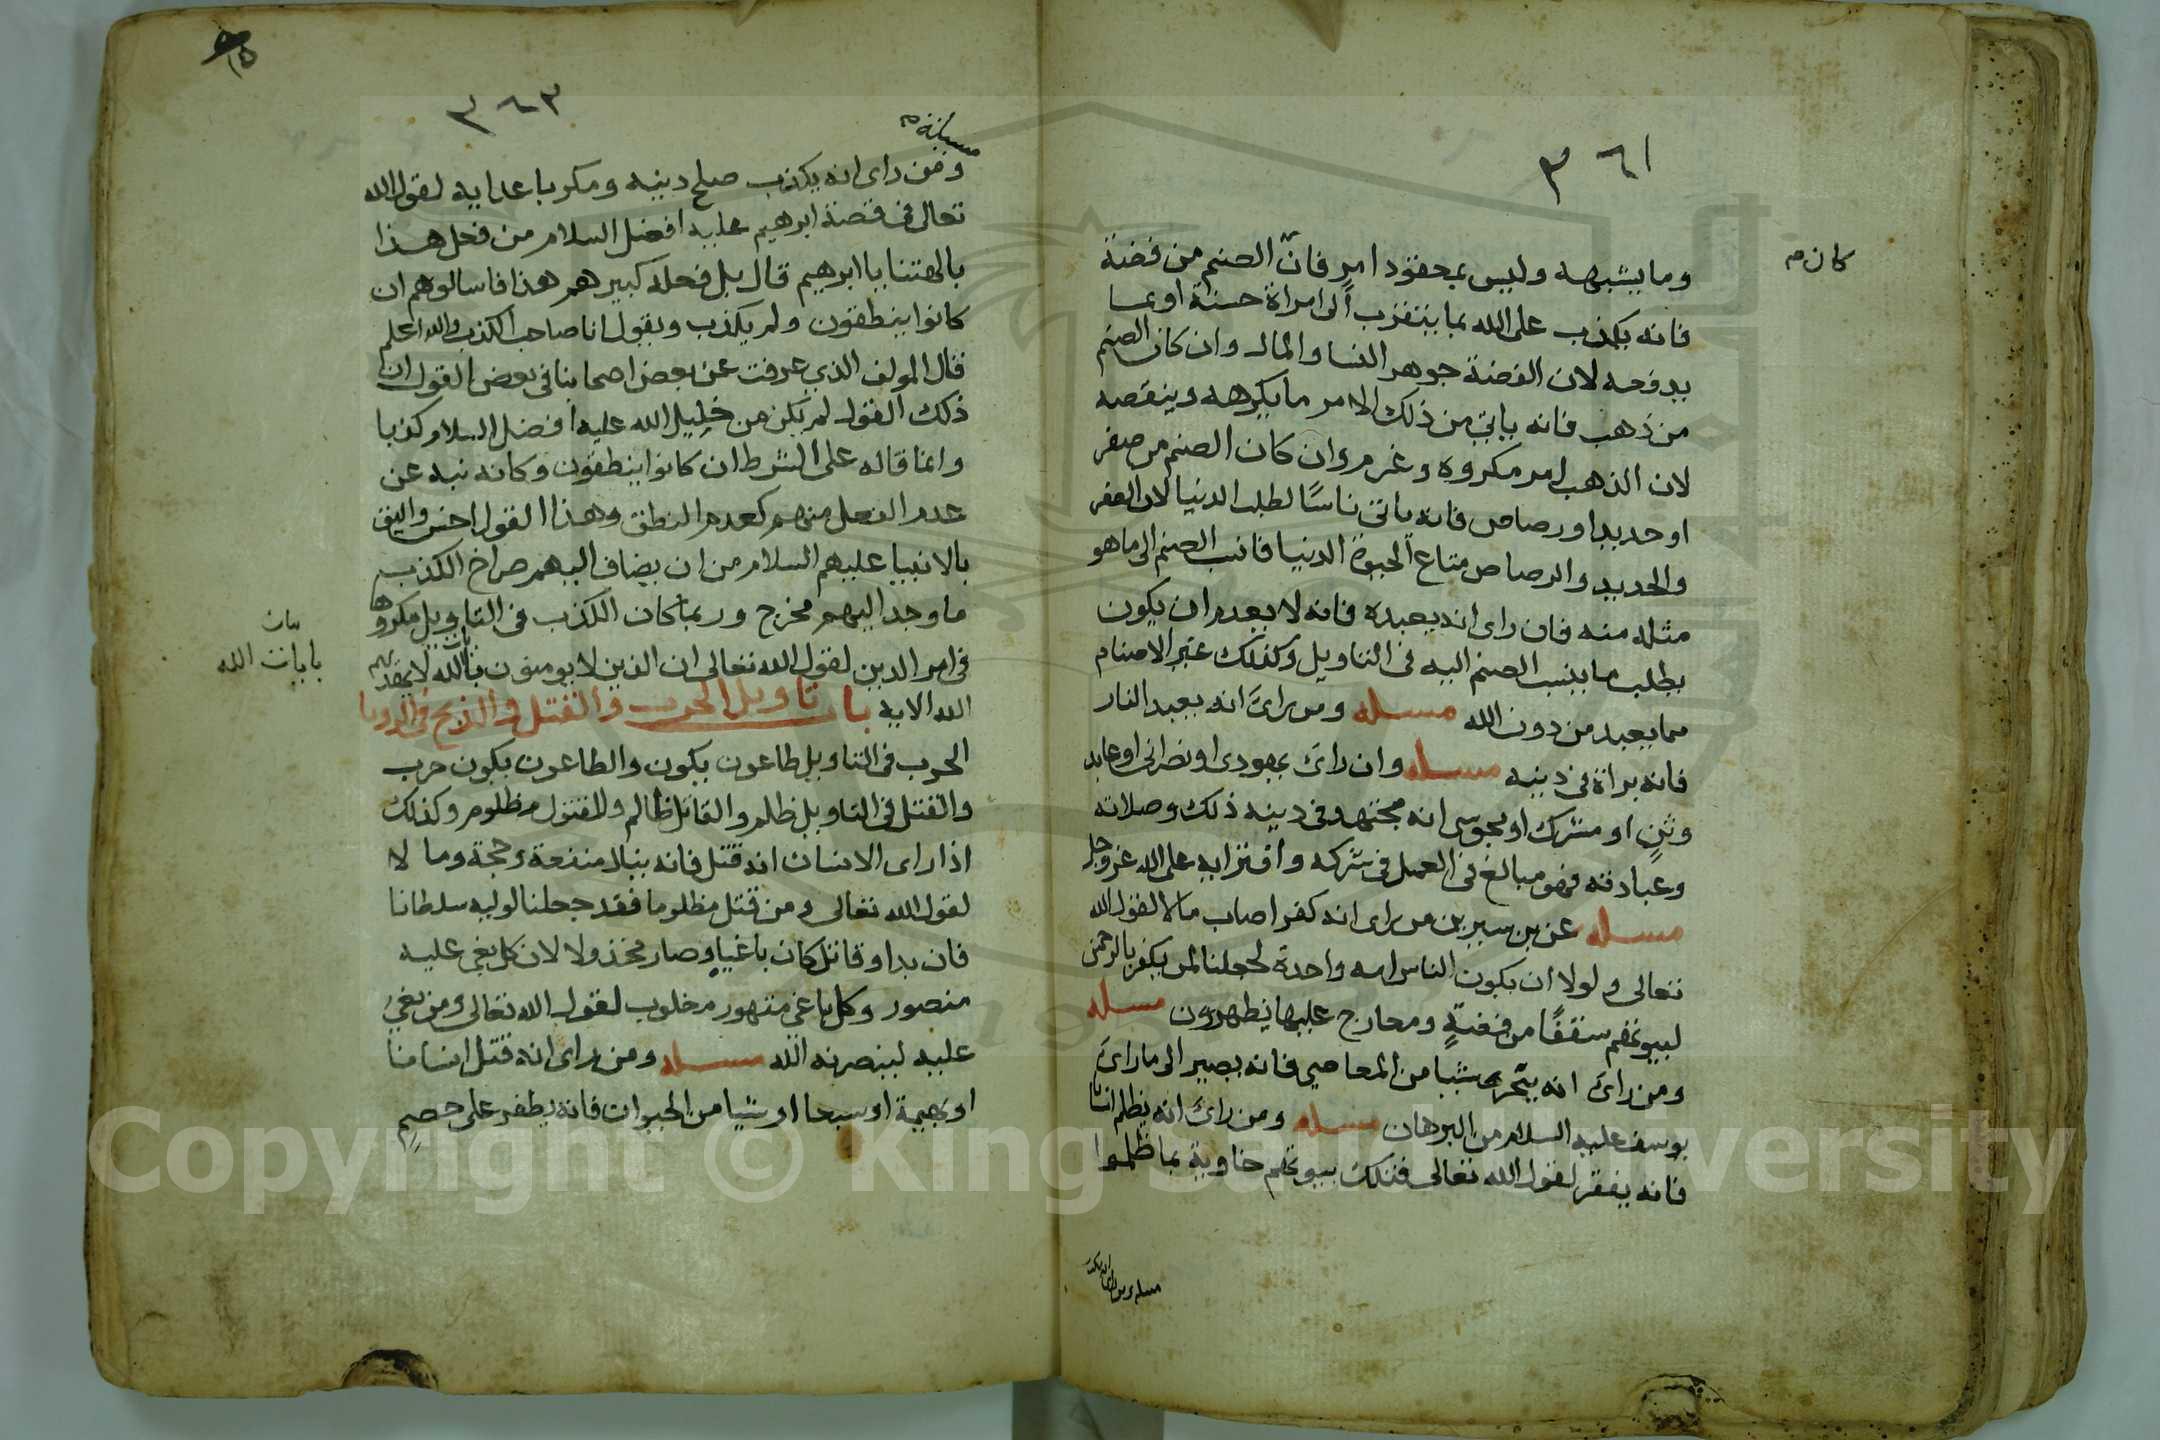 ٣٦١
كان م
وما يشبهه وليس بمحقود امرٍ فانّ الصنم من فضة
فانه يكذب على الله بما يتقرب الى امراة حسنة او بما
يدفعه لان الفضة جوهر النسا والمال وان كان الصنم
من ذهب فانه ياتي من ذلك الامر ما يكرهه وينقصه
لان الذهب امر مكروه وغرم وان كان الصنم من صفر
او حديد او رصاص فانه ياتى ناسًا لطلب الدنيا لان الصفر
والحديد والرصاص متاع الحيوة الدنيا فانسب الصنم الى ما هو
مثله منه فان راى انه يعبده فانه لا يعدم ان يكون
يطلب ما ينسب الصنم اليه فى التاويل وكذلك غير الاصنام
مما يعبد من دون الله مسله ومن راى انه يعبد النار
فانه براة فى دينه مسله وان راى يهودى او نصرانى او عابد
وثنٍ او مشرك او مجوسى انه مجتهد فى دينه ذلك وصلاته
وعبادته فهو مبالغ فى العمل فى شركه وافترايه على الله عز وجل
مسله عن بن سيرين من راى انه كفر اصاب مالا لقول الله
تعالى ولولا ان يكون الناس امه واحدة لجعلنا لمن يكفر بالرحمن
لبيوتهم سقفًا من فضةٍ ومعارج عليها يظهرون مسله
ومن راى انه يتحرى شيا من المعاصي فانه يصير الى ما راى
يوسف عليه السلام من البرهان مسله ومن راى انه يظلم انسانا
فانه يفقر لقول الله تعالى فتلك بيوتهم خاوية بما ظلموا
مسله ومن راى انه يكذب
١٥
٣٦٣
مسئلة م
ومن راى انه يكذب صلح دينه ومكر باعدايه لقول الله
تعالى فى قصة ابرهيم عليه افضل السلام من فعل هذا
بالهتنا يا ابرهيم قال بل فعله كبيرهم هذا فاسالوهم ان
كانوا ينطقون ولم يكذب ويقول انا صاحب الكذب والله اعلم
قال المولف الذي عرفت عن بعض اصحابنا فى بعض القول ان
ذلك القول لم يكن من خليل الله عليه افضل السلام كذبا
وانما قاله على الشرط ان كانوا ينطقون وكانه نبه عن
عدم الفعل منهم كعدم النطق وهذا القول احسن واليق
بالانبيا عليهم السلام من ان يضاف اليهم صراخ الكذب
ما وجد اليهم مخرج وربما كان الكذب فى التاويل مكروها
فى امر الدين لقول الله تعالى ان الذين لا يومنون بالله لا يهديهم
بيان
بايات الله
الله الاية باب تاويل الحرب والقتل والذبح فى الرويا
الحرب فى التاويل طاعون يكون والطاعون يكون حرب
والقتل فى التاويل ظلم والقاتل ظالم والمقتول مظلوم وكذلك
اذا راى الانسان انه قتل فانه ينال منفعة وحجة وما لا
لقول الله تعالى ومن قتل مظلوما فقد جعلنا لوليه سلطانا
فان بدا وقاتل كان باغياٍ وصار مخذولا لان كل بغى عليه
منصور وكل باغى مقهور مغلوب لقول الله تعالى ومن بغى
عليه لينصرنه الله مسله ومن راى انه قتل انسانا
او بهيمة او سبعا او شيا من الحيوان فانه يظفر على خصمٍ
Copyright © King Saud University